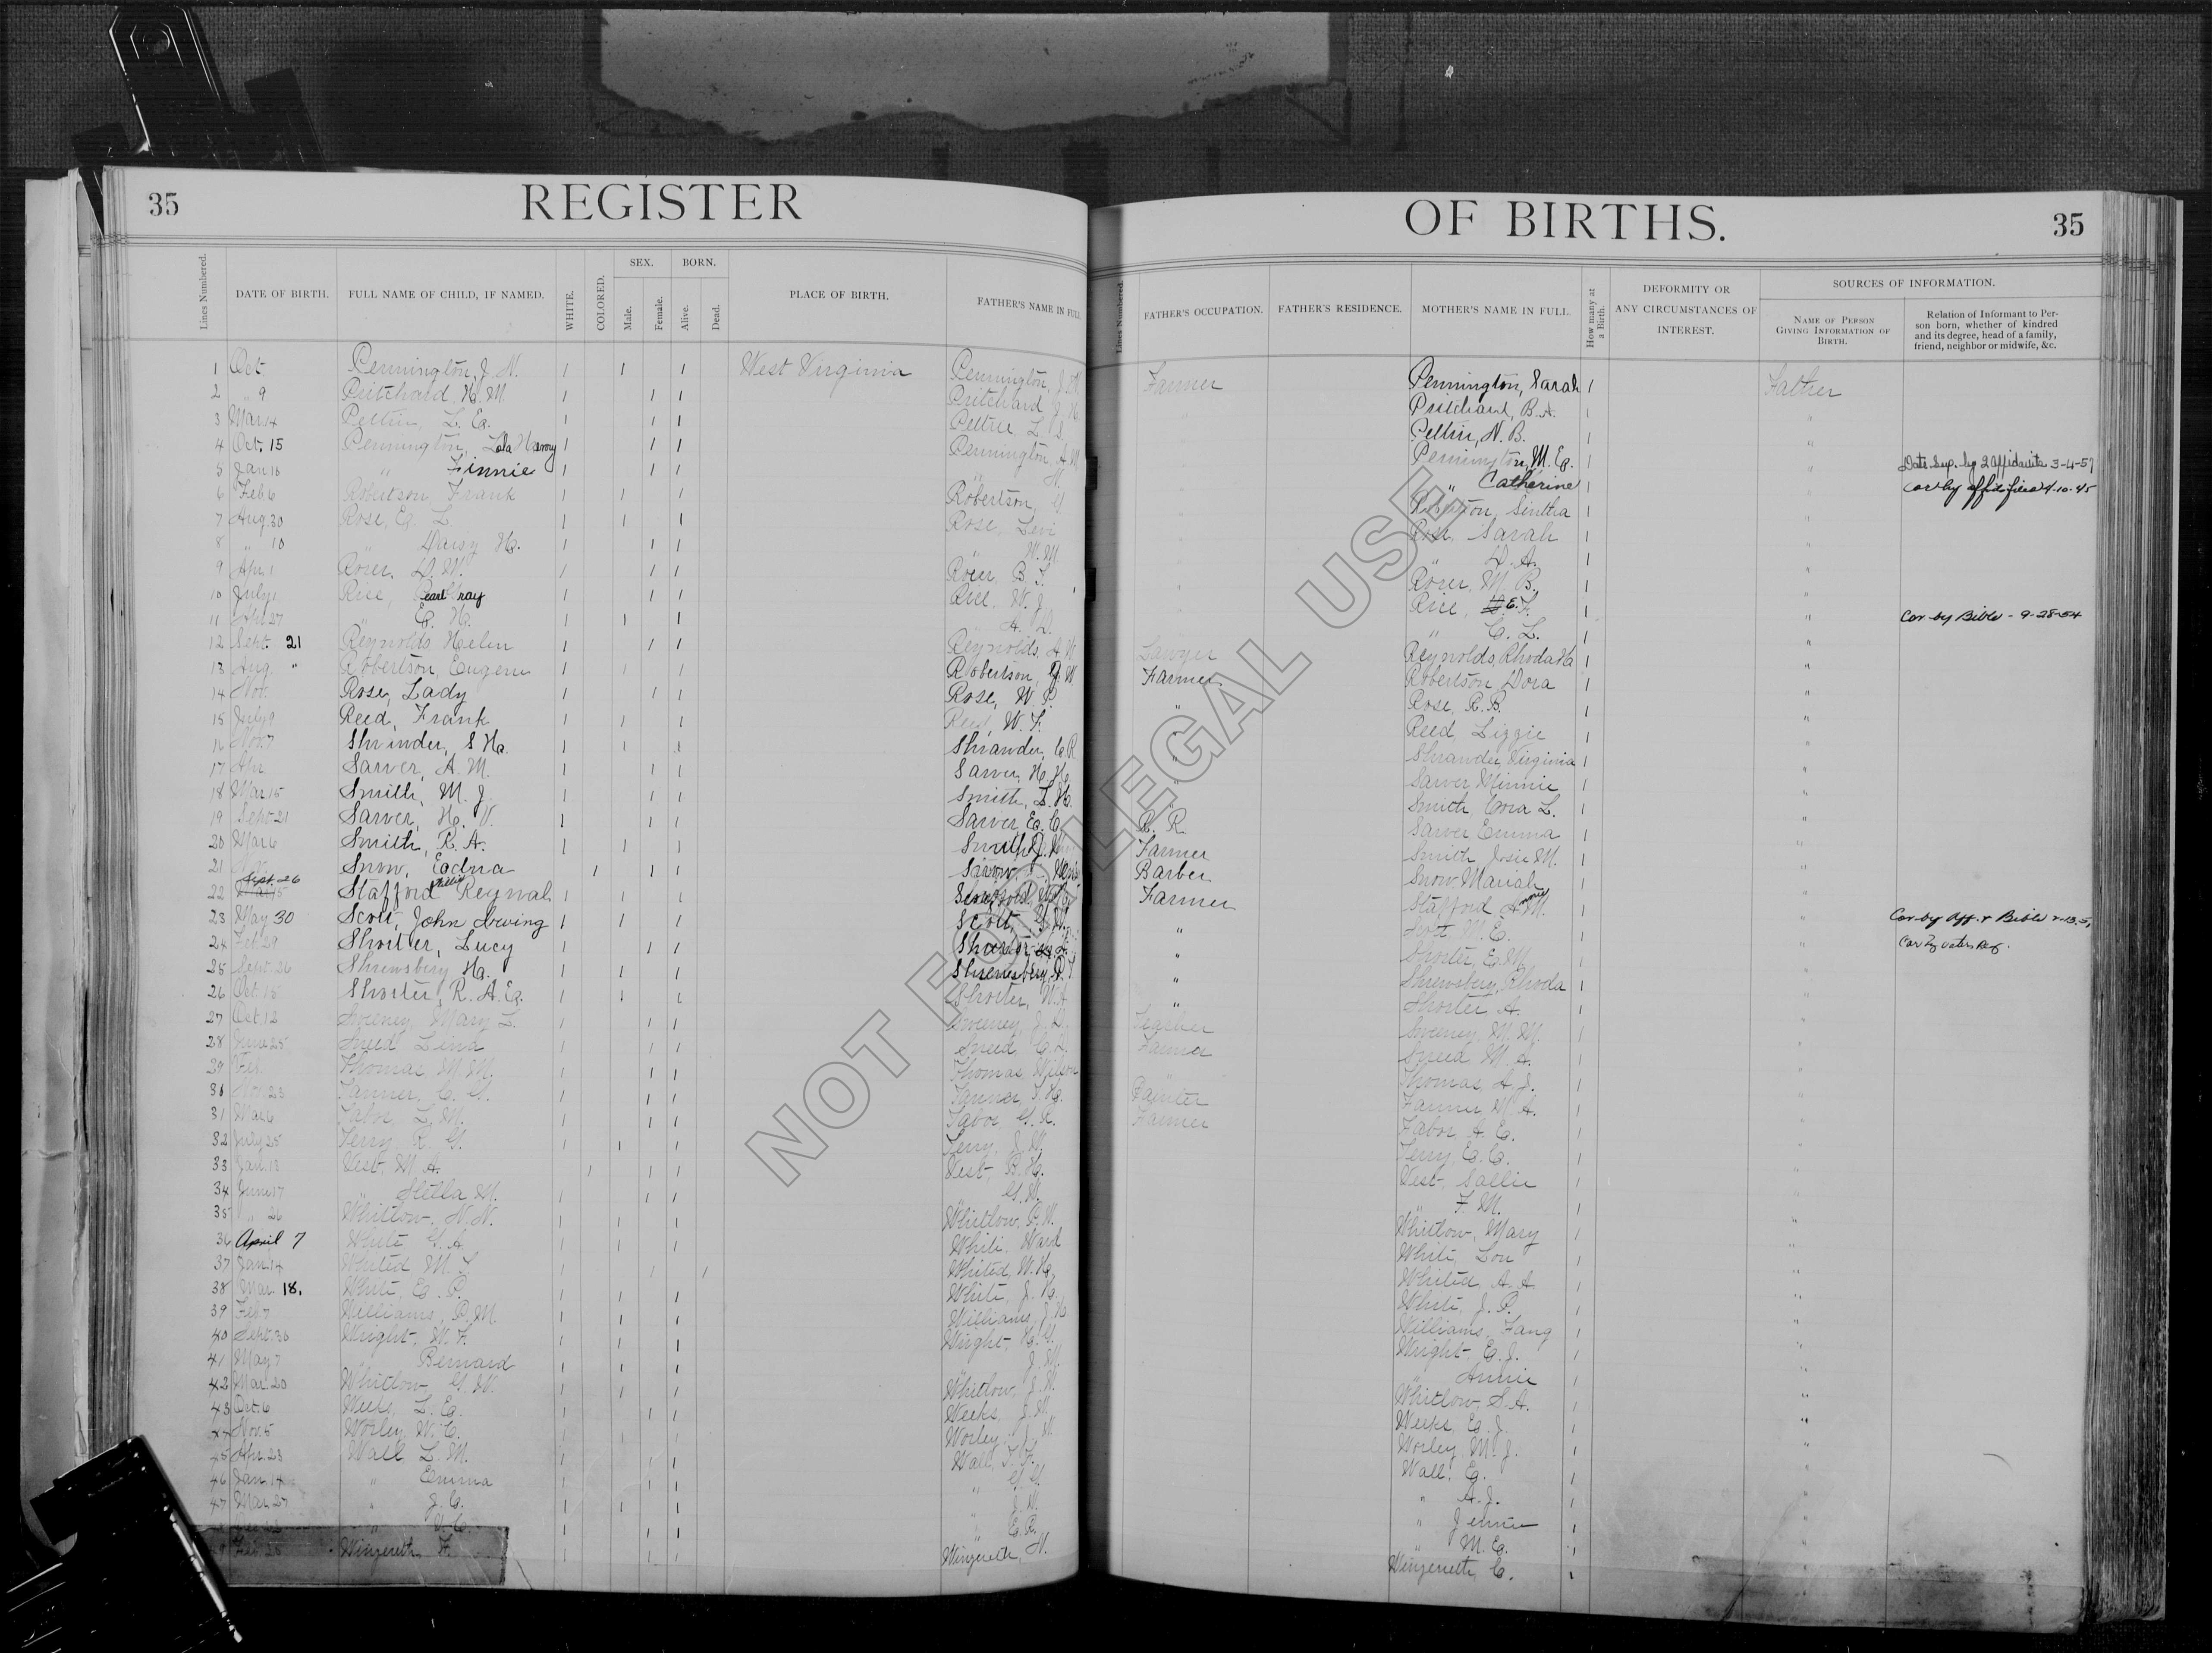 35 REGISTER OF BIRTHS. 35
Lines Numbered. DATE OF BIRTH. FULL NAME OF CHILD, IF NAMED. WHITE. COLORED. SEX. Male. Female. BORN. Alive. Dead. PLACE OF BIRTH. FATHER'S NAME IN FULL Lines Numbered. FATHER'S OCCUPATION. FATHER'S RESIDENCE. MOTHER'S NAME IN FULL. How many at a Birth. DEFORMITY OR ANY CIRCUMSTANCES OF INTEREST. SOURCES OF INFORMATION. NAME OF PERSON GIVING INFORMATION OF BIRTH. Relation of Informant to Person born, whether of kindred and its degree, head of a family, friend, neighbor or midwife, &c.
1 Oct Pennington, J. N. 1 1 1 West Virginia Pennington, Farmer Pennington, Sarah 1 Father
2 " 9 Pritchard, H. M 1 1 1 Pritchard Pritchard, B. A. 1 "
3 Mar 14 L. E. 1 1 1 N. B. 1 "
4 Oct. 15 Pennington, Lola 1 1 1 Pennington, A. M Pennington, M. E. 1 " Date Sup. by 2 affidavits 3-4-57
5 Jan 16 " Linnie 1 1 1 " " Catherine 1 " Cor by 4-10-45
6 Feb 6 Robertson, Frank 1 1 1 Robertson, Sintha 1 "
7 Aug. 30 Rose, E. L. 1 1 1 Rose, Levi Rose, Sarah 1 "
8 " 10 " Daisy H. 1 1 1 " W. M " D. A. 1 "
9 Apr. 1 Rorer, D. W. 1 1 1 Rorer, B. Rorer, M. B. 1 "
10 July 1 Rice, Pearl Gray 1 1 1 Rice, W. J. Rice, 1 " Cor by Bible - 9-28-54
11 27 " E. H. 1 1 1 " " C. L. 1 "
12 Sept. 21 Reynolds, Helen 1 1 1 Reynolds, A. W Lawyer Reynolds, Rhoda 1 "
13 Aug " Robertson, Eugene 1 1 1 Robertson, W Farmer Robertson Dora 1 "
14 Nov. Rose, Lady 1 1 1 Rose, W. P. " Rose, R. B. 1 "
15 July 9 Reed, Frank 1 1 1 Reed, W. F. " Reed Lizzie 1 "
16 Nov. 7 S H. 1 1 1 Shrander, C R " Shrander, Virginia 1 "
17 Apr Sarver, A. M. 1 1 1 Sarver, H. H. " Sarver Minnie 1 "
18 Mar. 15 Smith, M. J. 1 1 1 Smith, L. H. " Smith, Cora L. 1 "
19 Sept. 21 Sarver, H. V. 1 1 1 Sarver, E. C. R. R. Sarver Emma 1 "
20 Mar 6 Smith, R. A. 1 1 1 Smith Farmer Smith, Josie M. 1 "
21 Snow, Eadna 1 1 1 Snow Barber Snow Mariah 1 "
22 Sept. 26 Stafford Reynal 1 1 1 Farmer Stafford 1 " Cor by Aff. & Bible
23 May 30 Scott, John Irving 1 1 1 Scott, " Scott M. E. 1 " Cor by voters Reg.
24 Feb. 29 Shorter, Lucy 1 1 1 Shorter " Shorter, E. M. 1 "
25 Sept. 26 Shrewsbery, H. 1 1 1 Shrewsbery " Shrewsbery, Rhoda 1 "
26 Oct. 15 Shorter, R. A. E. 1 1 1 Shorter, W. A " Shorter A. 1 "
27 Oct. 12 Sweeney, Mary L. 1 1 1 Sweeney, J. Teacher Sweeney, M. M. 1 "
28 June 25 Sneed Lena 1 1 1 Sneed, C. L. Farmer Sneed M. A. 1 "
29 Feb. Thomas M. M. 1 1 1 Thomas, Wilson Thomas, A. J. 1 "
30 Nov. 23 Tanner, C. G. 1 1 1 Tanner, Painter Tanner, M. A. 1 "
31 Mar. 6 Tabor, L. M. 1 1 1 Tabor Farmer Tabor, A. E. 1 "
32 July 25 Terry, R. G. 1 1 1 Terry, J. W. Terry, E. C. 1 "
33 Jan. 13 Vest, M. A. 1 1 1 Vest, B. H. Vest, Sallie 1 "
34 June 17 " Stella M. 1 1 1 " G. W. " F. M. 1 "
35 " 26 Whitlow, N. N. 1 1 1 Whitlow, P. W. Whitlow, Mary 1 "
36 April 7 White G. A. 1 1 1 White, Ward White, Lou 1 "
37 Jan. 14 Whited M. L. 1 1 1 Whited, W. H. Whited, A. A. 1 "
38 Mar. 18, White, E. P. 1 1 1 White, J. H. White, J. P. 1 "
39 Feb. 7 Williams, P. M. 1 1 1 Williams, J. H. Williams, Fang 1 "
40 Sept. 30 Wright, W. F. 1 1 1 Wright, H. G. Wright, E. J. 1 "
41 May 7 " Bernard 1 1 1 " J. M. " Annie 1 "
42 Mar. 20 Whitlow, G. W. 1 1 1 Whitlow, J. W. Whitlow, S. A. 1 "
43 Oct. 6 Weeks, L. E. 1 1 1 Weeks, J. W. Weeks, E. J. 1 "
44 Nov. 5 Worley, W. C. 1 1 1 Worley, Worley, M. J. 1 "
45 Apr. 23 Wall L. M. 1 1 1 Wall, T. F. Wall, E. 1 "
46 Jan. 14 " Emma 1 1 1 " G. G. " A. J. 1 "
47 Mar. 27 " J. C. 1 1 1 " J. W. " Jennie 1 "
" 1 1 1 " E. R. " M. E. 1 "
Wingereth, F. 1 1 1 Wingereth, N. Wingereth, C. 1 "
NOT FOR LEGAL USE